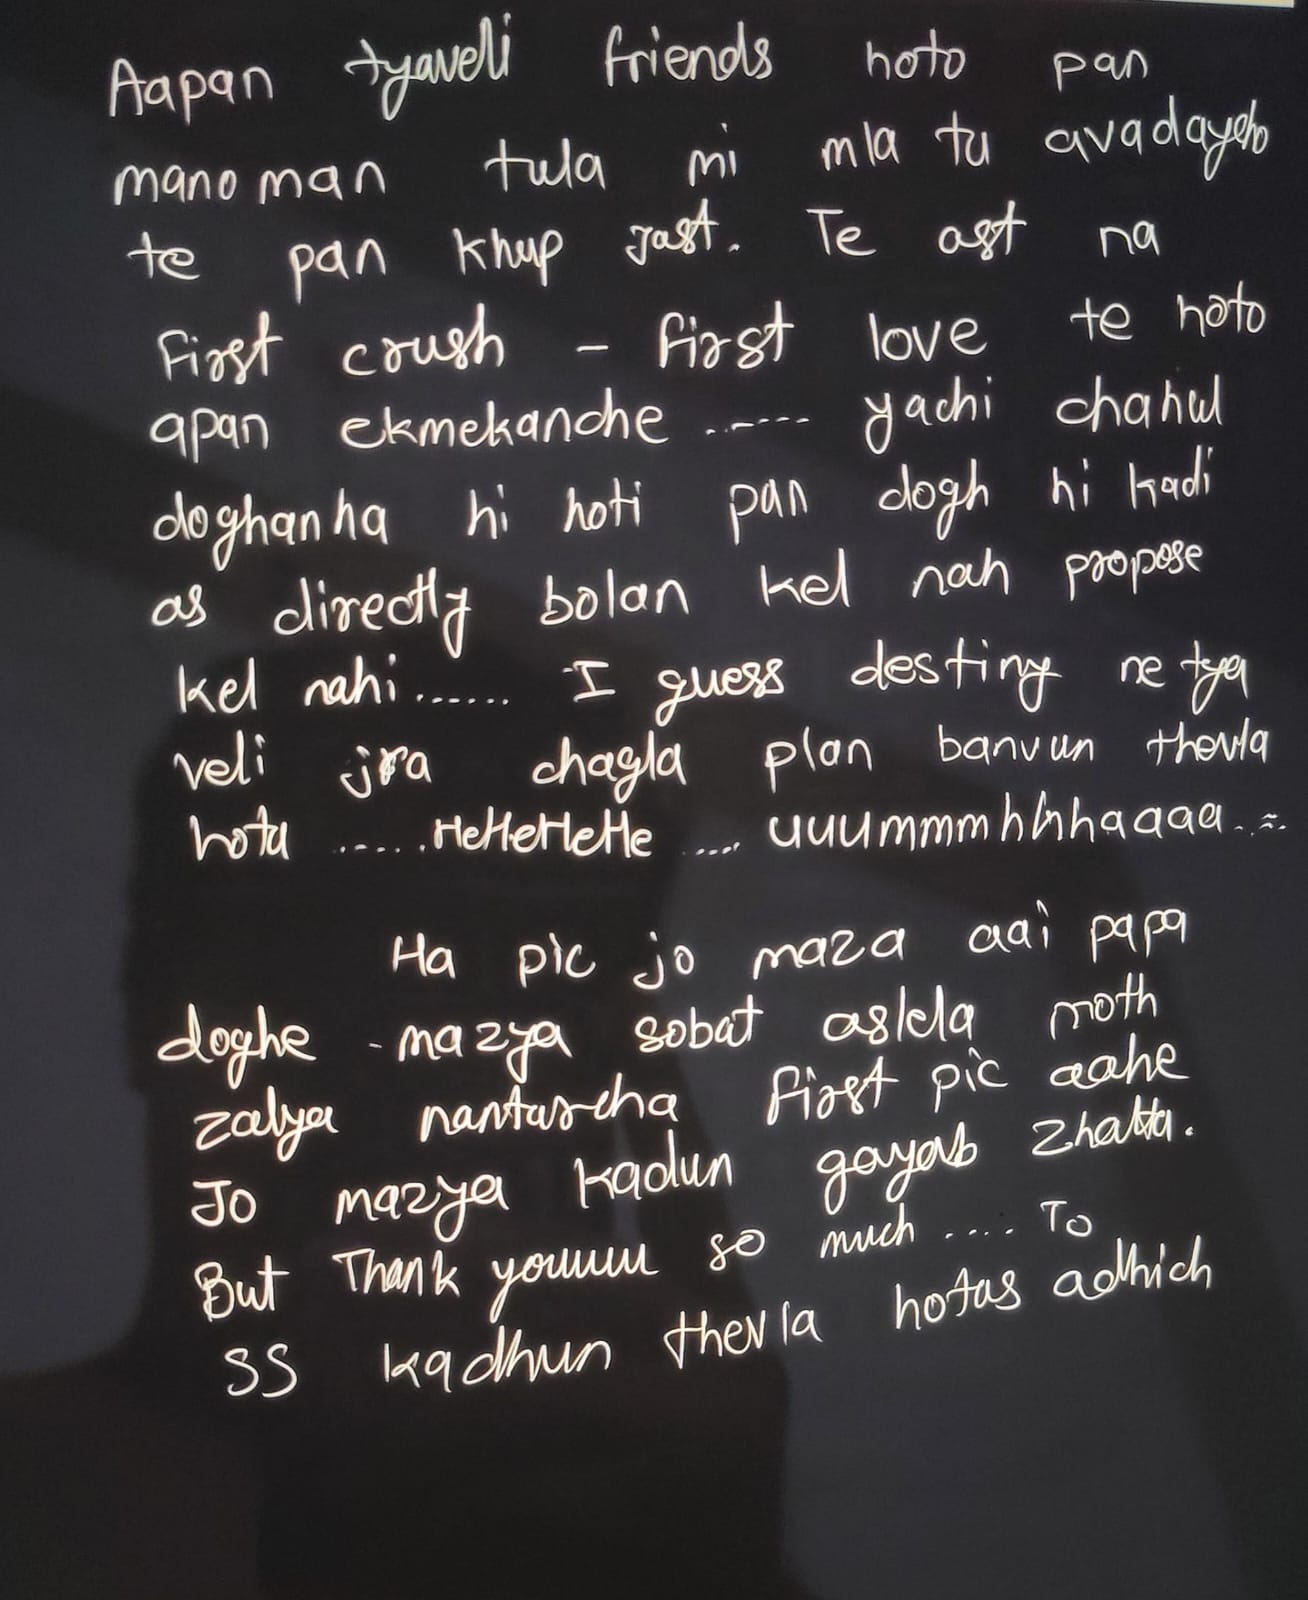 Aapan tyaveli friends hoto pan
manoman tula mi mla tu avadaycho
te pan khup jast. Te ast na
First crush - first love te hoto
apan ekmekanche ...... yachi chahul
doghanha hi hoti pan dogh hi kadi
as directly bolan kel nah propose
kel nahi...... I guess destiny ne tya
veli jra chagla plan banvun thevla
hota ......HeHeHeHe .... uuummmhhhhaaaa....
Ha pic jo maza aai papa
doghe mazya sobat aslela moth
zalya nantarcha first pic aahe
Jo mazya kadun gayab zhalta.
But Thank youuuu so much .... To
SS kadhun thevla hotas adhich